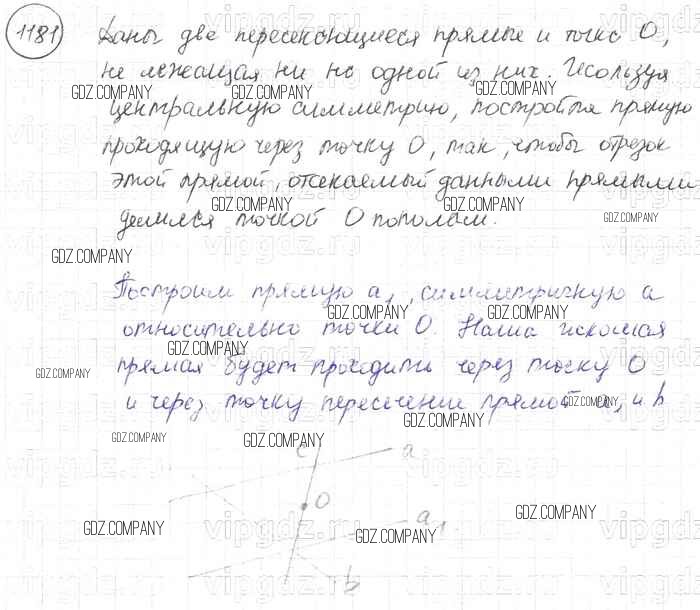 1181 Даны две пересекающиеся прямые и точка О,
не лежащая ни на одной из них. Используя
GDZ.COMPANY GDZ.COMPANY GDZ.COMPANY
центральную симметрию, постройте прямую
проходящую через точку О, так, чтобы отрезок
этой прямой, отсекаемый данными прямыми
GDZ.COMPANY GDZ.COMPANY GDZ.COMPANY
делился точкой О пополам.
vipgdz.ru vipgdz.ru
GDZ.COMPANY
Построим прямую a₁, симметричную a
GDZ.COMPANY GDZ.COMPANY
относительно точки О. Наша искомая
GDZ.COMPANY
прямая будет проходить через точку О
GDZ.COMPANY
и через точку пересечения прямой a₁ и b
GDZ.COMPANY GDZ.COMPANY
GDZ.COMPANY GDZ.COMPANY
c a
O
GDZ.COMPANY
a₁
GDZ.COMPANY GDZ.COMPANY
b